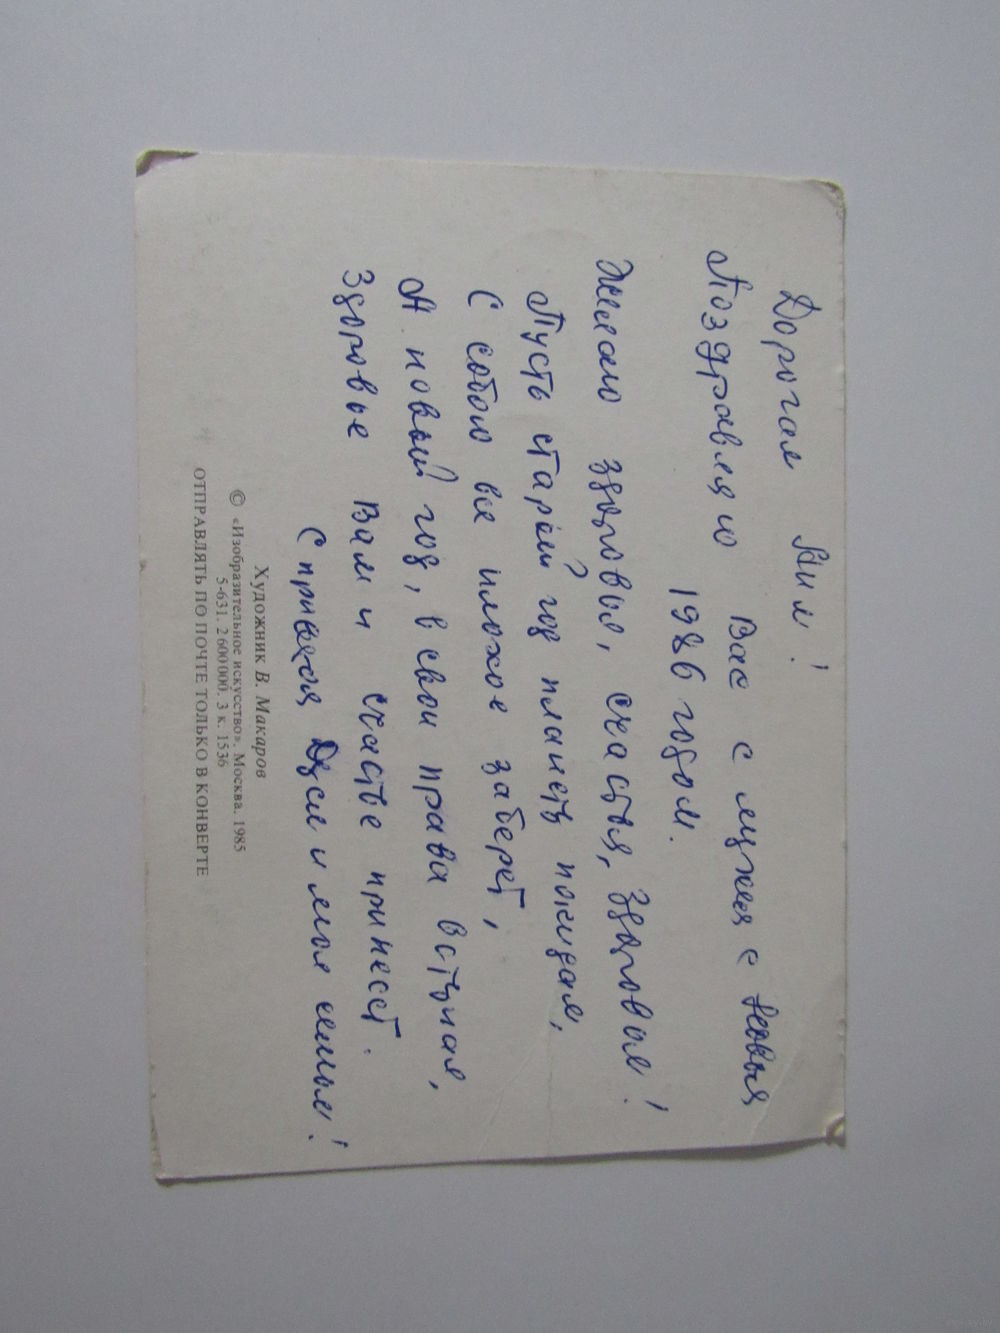 Дорогая Аня!
Поздравляю Вас с мужем с новым
1986 годом.
Желаю здоровья, счастья, здоровья!
Пусть старый год планету покидая,
С собою все плохое заберет,
А новый год, в свои права вступая,
Здоровье Вам и счастье принесет.
С приветом и моя семья!
Художник В. Макаров
© «Изобразительное искусство». Москва. 1985
5-631. 2 600 000. 3 к. 1536
ОТПРАВЛЯТЬ ПО ПОЧТЕ ТОЛЬКО В КОНВЕРТЕ